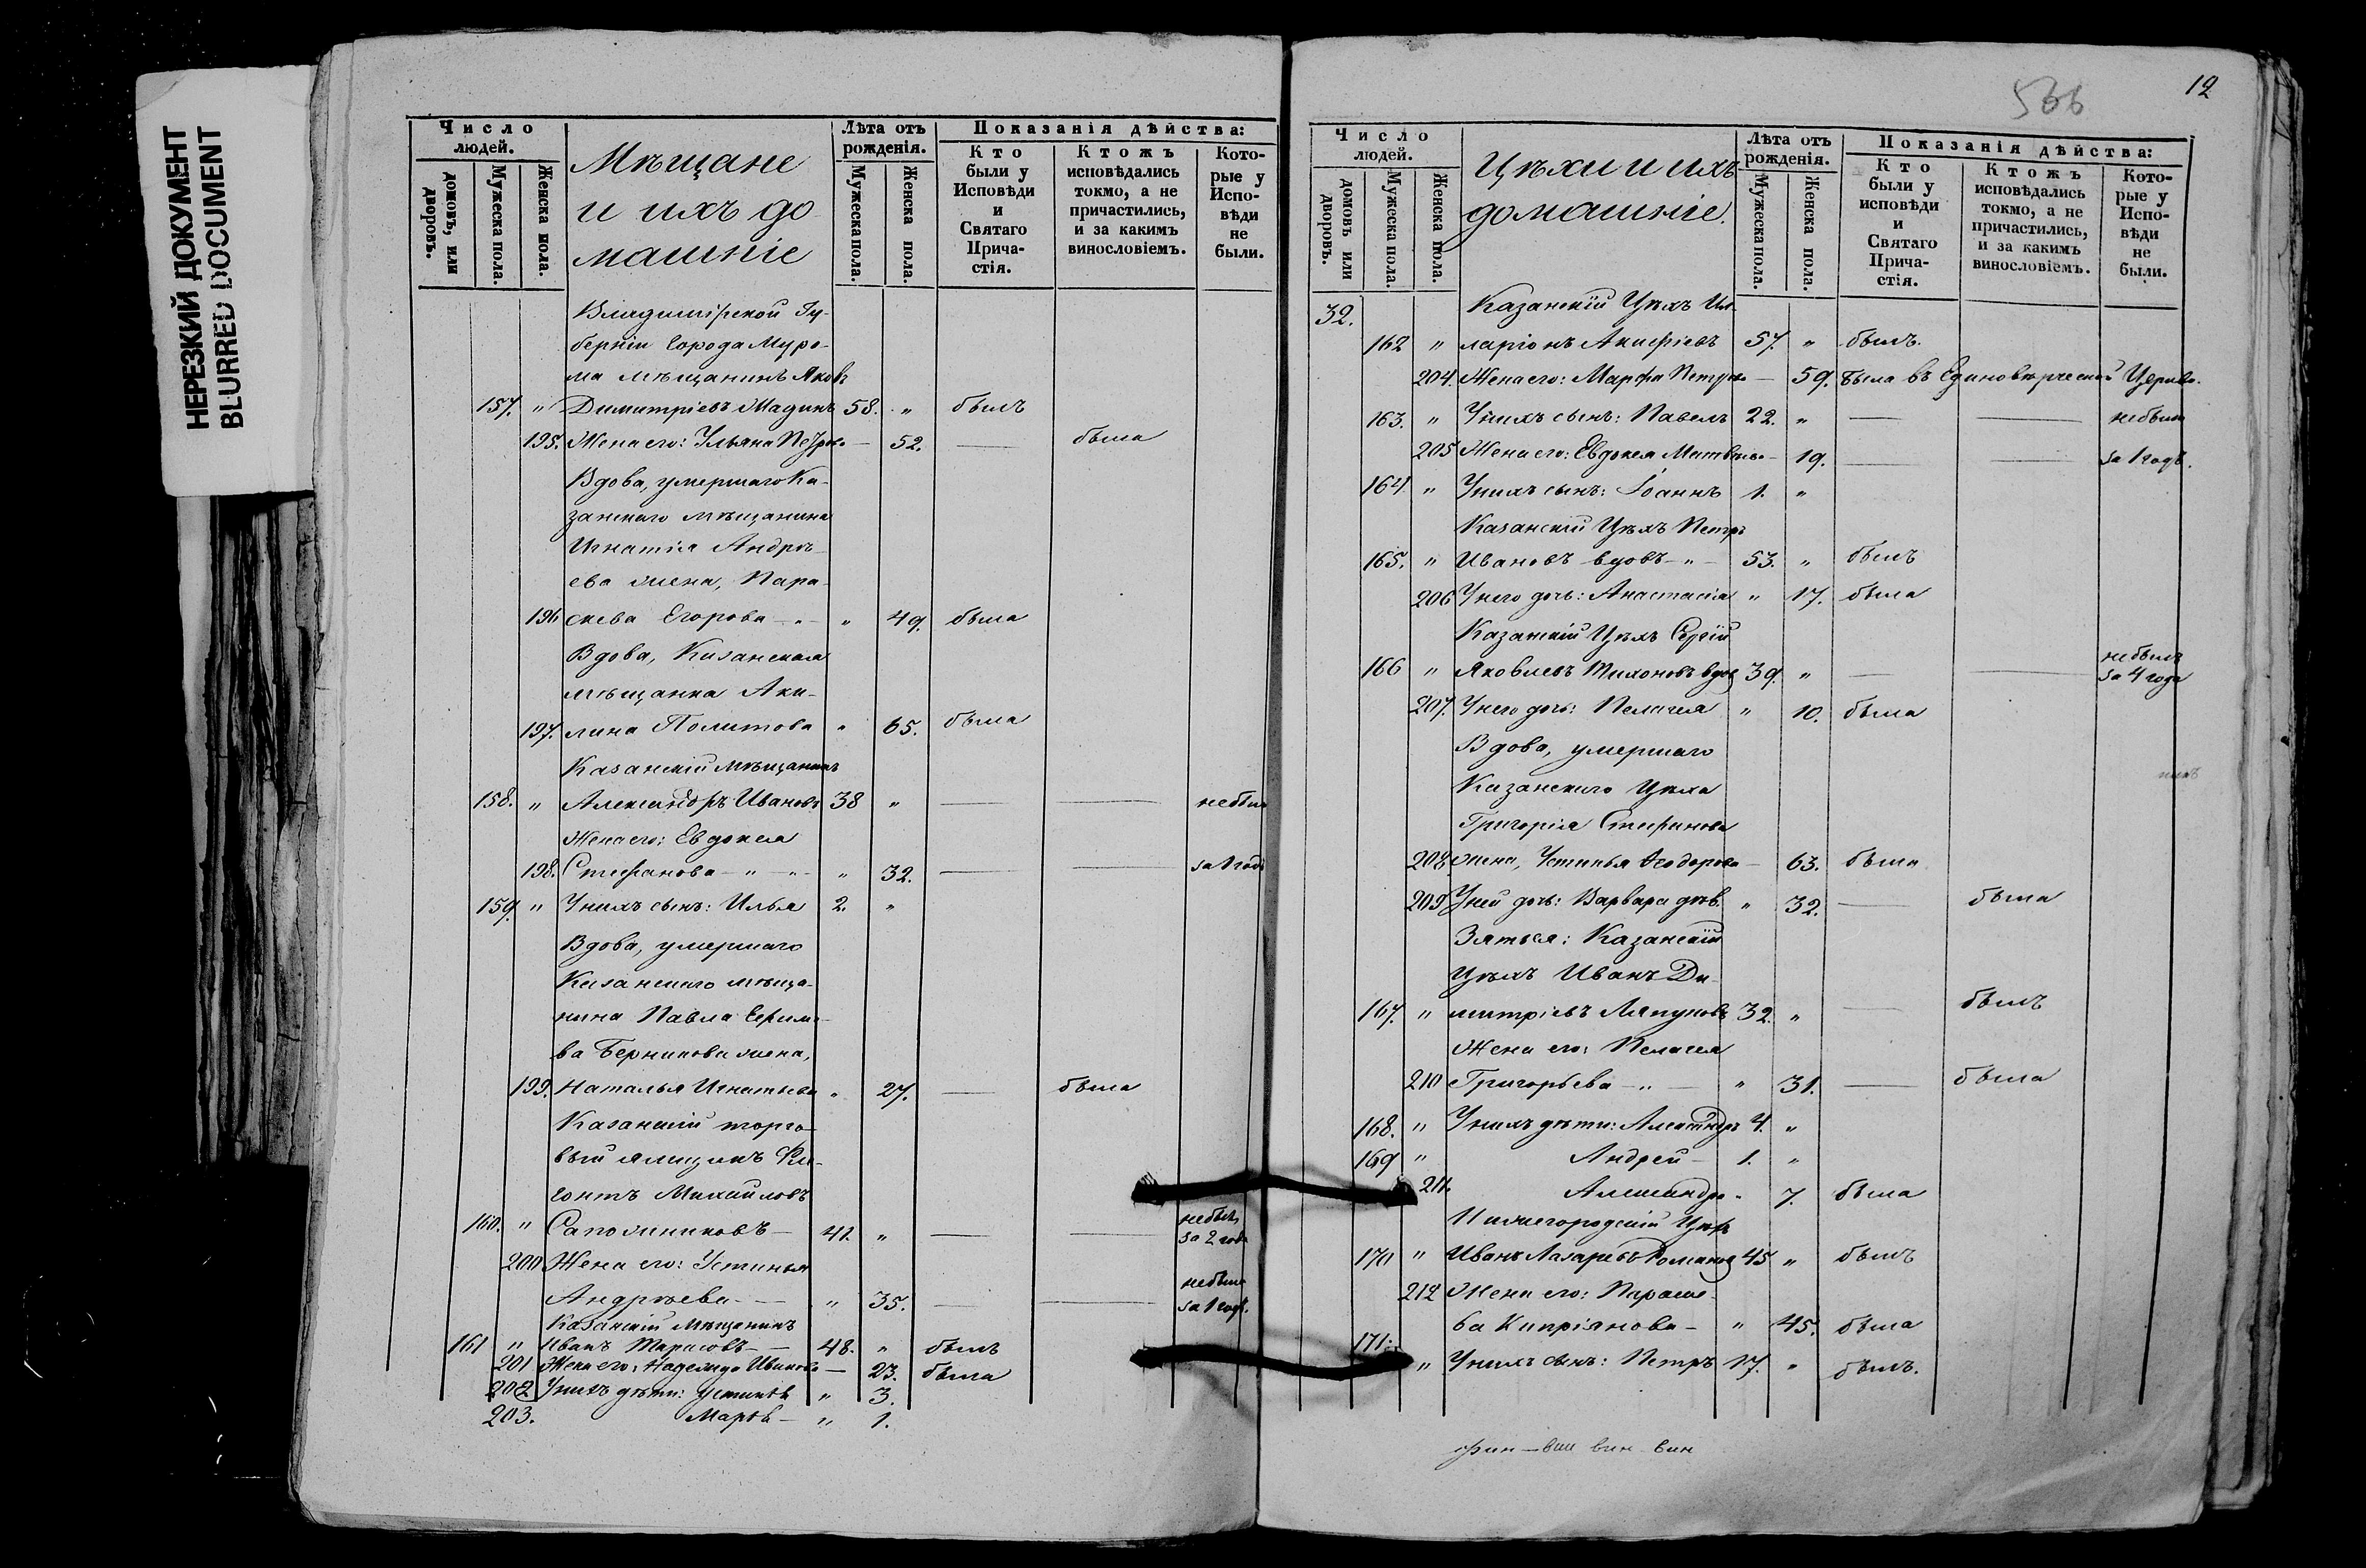 НЕРЕЗКИЙ ДОКУМЕНТ
BLURRED DOCUMENT
Число людей.
домовъ, или дворовъ.
Мужеска пола.
Женска пола.
Мѣщане
и ихъ до
машніе
Лѣта отъ рожденія.
Мужеска пола.
Женска пола.
Показанія дѣйства:
Кто были у Исповѣди и Святаго Прича-стія.
Ктожъ исповѣдались токмо, а не причастились, и за какимъ винословіемъ.
Кото-рые у Испо-вѣди не были.
Владимірской Гу-
берніи города Муро-
ма мѣщанинъ Яковъ
157. " Димитріевъ Мадинъ 58. " былъ
195. Жена его: Ульяна Петрова — 52. — была
Вдова, умершаго Ка-
занскаго мѣщанина
Игнатія Андрѣ-
ева жена, Пара-
196 скева Егорова - " - " 49. была
Вдова, Казанская
мѣщанка Аку-
197. лина Политова " 65. была
Казанскій мѣщанинъ
158. " Александръ Ивановъ 38 " — — небылъ
Жена его: Евдокея
198. Стефанова - " - " - " 32. — — за 1 годъ
159. " У нихъ сынъ: Илья 2. "
Вдова, умершаго
Казанскаго мѣща-
нина Павла
ва жена,
199. Наталья Игнатьева " 27. — была
Казанскій торго-
вый ямщикъ
Михайловъ
160. " Сапожниковъ — 41 " — — небылъ за 2 года
200 Жена его: Устинья
Андрѣева — " 35. — — небыла за 1 годъ.
Казанскій мѣщанинъ
161 " Иванъ — 48. " былъ
201 Жена его: Надежда Иванова — 23. была
202 У нихъ дѣти: " 3.
203. Марѳа — " 1.
566
12
Число людей.
домовъ или дворовъ.
Мужеска пола.
Женска пола.
Цѣхи и ихъ
домашніе.
Лѣта отъ рожденія.
Мужеска пола.
Женска пола.
Показанія дѣйства:
Кто были у исповѣди и Святаго Прича-стія.
Ктожъ исповѣдались токмо, а не причастились, и за какимъ винословіемъ.
Кото-рые у Испо-вѣди не были.
32. Казанскій Цѣхъ Ил-
162 "ларіонъ 57. " былъ.
204. Жена его: Марфа Петрова — 59. была въ Единовѣрческой Церкви.
163. " У нихъ сынъ: Павелъ 22. " — — небылъ
205 Жена его: Евдокея Матвѣева — 19. — — за 1 годъ.
164. " У нихъ сынъ: Іоаннъ 1. "
Казанскій Цѣхъ Петръ
165. " Ивановъ вдовъ - " - 53. " былъ
206 У него дочь: Анастасія " 17. была
Казанскій Цѣхъ Сергій
166 " Яковлевъ Тихоновъ вдов 39. " — — небылъ за 4 года
207. У него дочь: Пелагея " 10. была
Вдова, умершаго
Казанскаго Цѣха
Григорія Стефанова
208 жена, Устинья Ѳеодорова — 63. была
209 У ней дочь: Варвара дѣв. " 32. — была
Зять ея: Казанскій
Цѣхъ Иванъ Ди-
167. " митріевъ Ляпуновъ 32. " — былъ
Жена его: Пелагея
210 Григорьева - " — " 31. — была
168. " У нихъ дѣти: Александръ 4. "
169 " Андрей — 1. "
211. Александра " 7. была
Нижегородскій Цѣхъ
170 " Иванъ Лазаревъ Романовъ 45 " былъ
212 Жена его: Параске-
ва Кипріянова — " 45. была
171. " У нихъ сынъ: Петръ 17. " былъ.